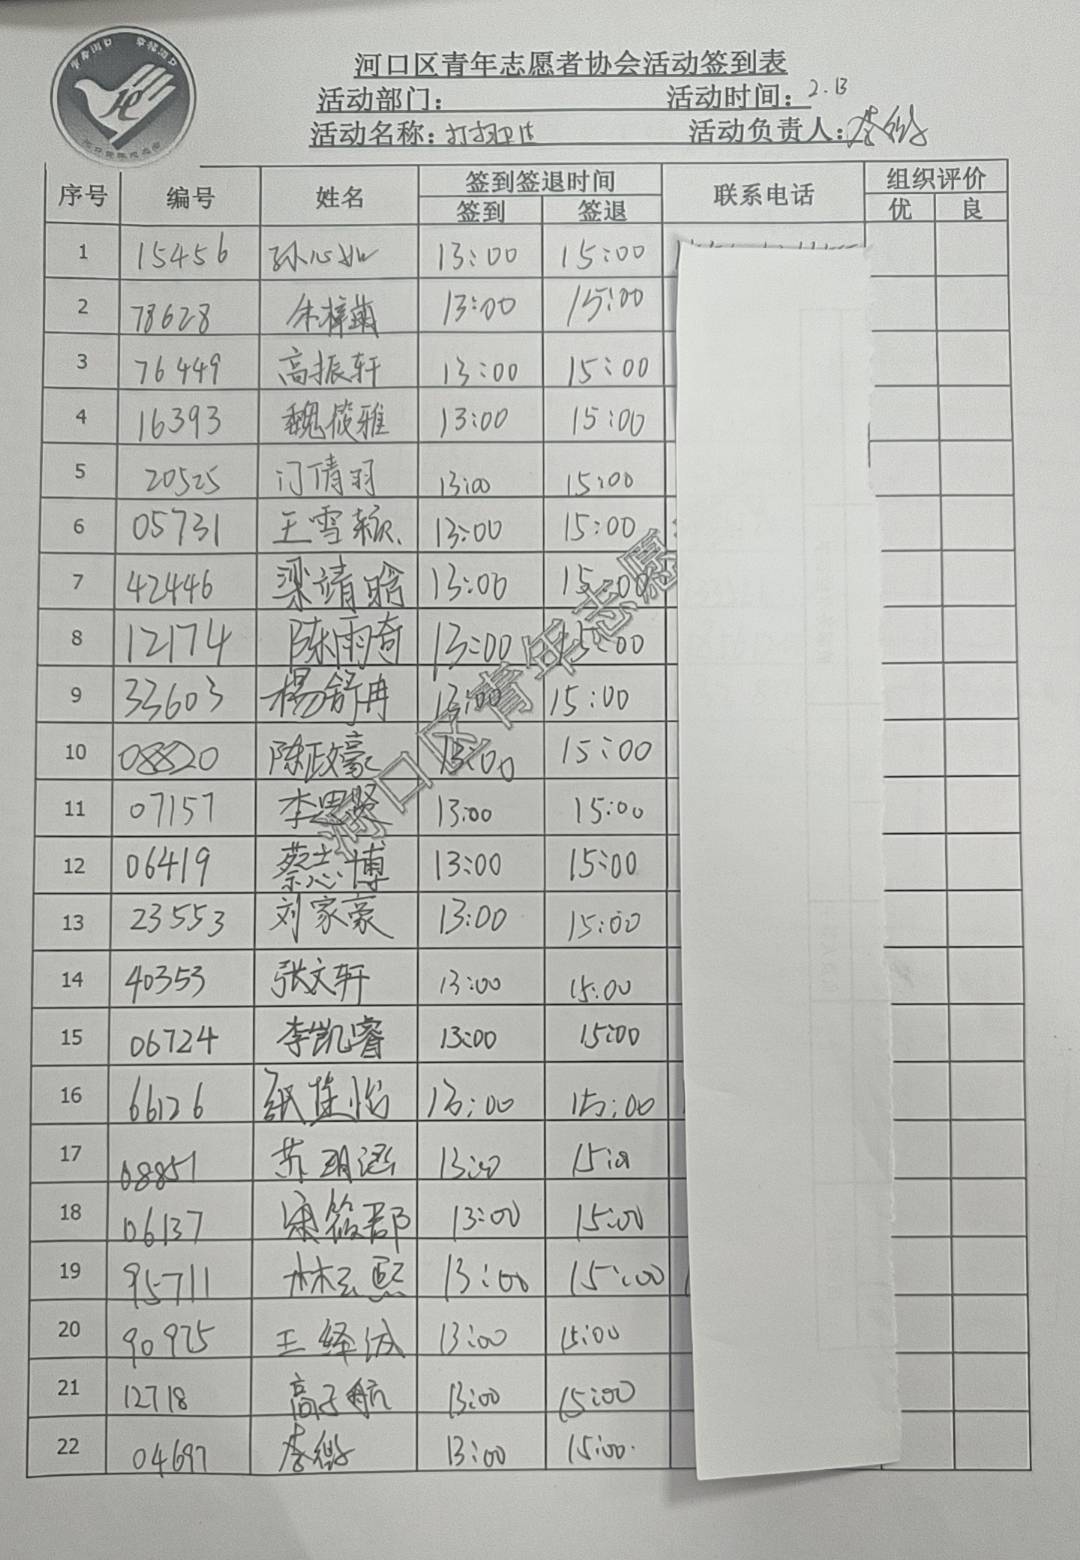 河口区青年志愿者协会活动签到表
活动部门： 活动时间：2.13
活动名称：打扫卫生 活动负责人：李
序号 编号 姓名 签到签退时间 联系电话 组织评价
签到 签退 优 良
1 15456 孙心如 13:00 15:00
2 78628 朱梓萌 13:00 15:00
3 76449 高振轩 13:00 15:00
4 16393 魏筱雅 13:00 15:00
5 20525 门倩羽 13:00 15:00
6 05731 王雪颖 13:00 15:00
7 42446 梁靖晗 13:00 15:00
8 12174 陈雨奇 13:00 15:00
9 33603 杨舒冉 13:00 15:00
10 08820 陈政豪 13:00 15:00
11 07157 李思贤 13:00 15:00
12 06419 蔡志博 13:00 15:00
13 23553 刘家豪 13:00 15:00
14 40353 张文轩 13:00 15:00
15 06724 李凯睿 13:00 15:00
16 66126 佳怡 13:00 15:00
17 08851 苏玥涵 13:00 15:00
18 06137 筱郡 13:00 15:00
19 95711 林玄熙 13:00 15:00
20 90925 王 13:00 15:00
21 12718 高子航 13:00 15:00
22 04697 李 13:00 15:00
河口区青年志愿